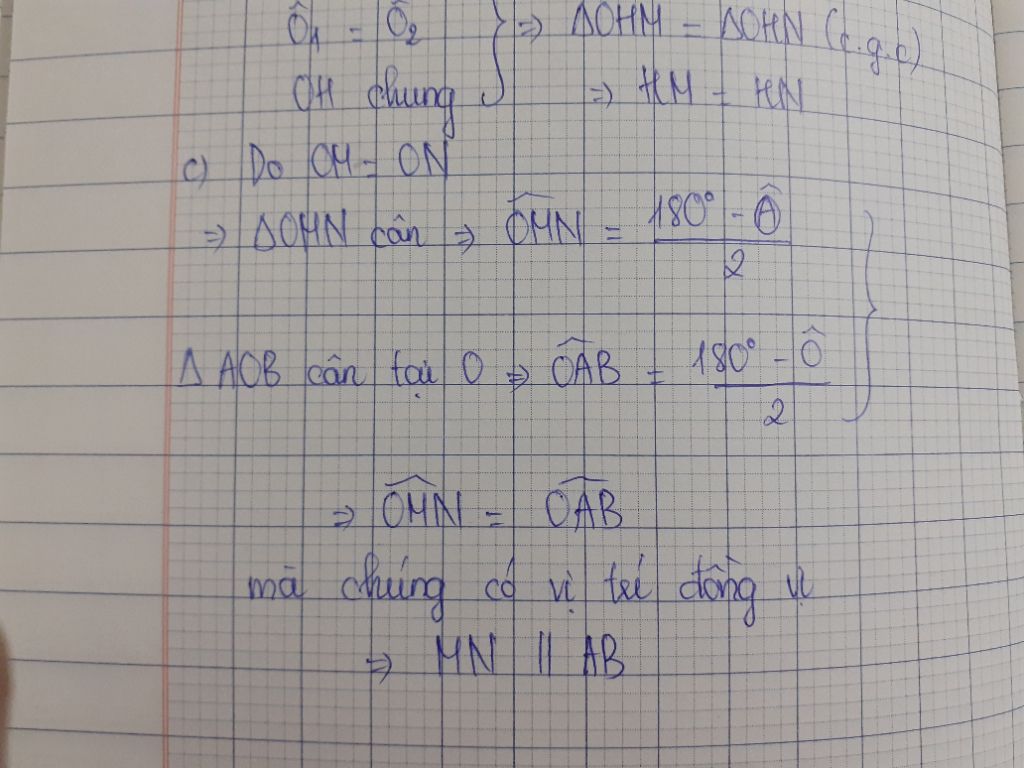 Ô₁ = Ô₂ } ⇒ ΔOHM = ΔOHN (c.g.c)
OH chung ⇒ HM = HN
c) Do OM = ON
⇒ ΔOMN cân ⇒ \widehat{OMN} = \frac{180° - Ô}{2}
Δ AOB cân tại O ⇒ \widehat{OAB} = \frac{180° - Ô}{2} }
⇒ \widehat{OMN} = \widehat{OAB}
mà chúng có vị trí đồng vị
⇒ MN // AB